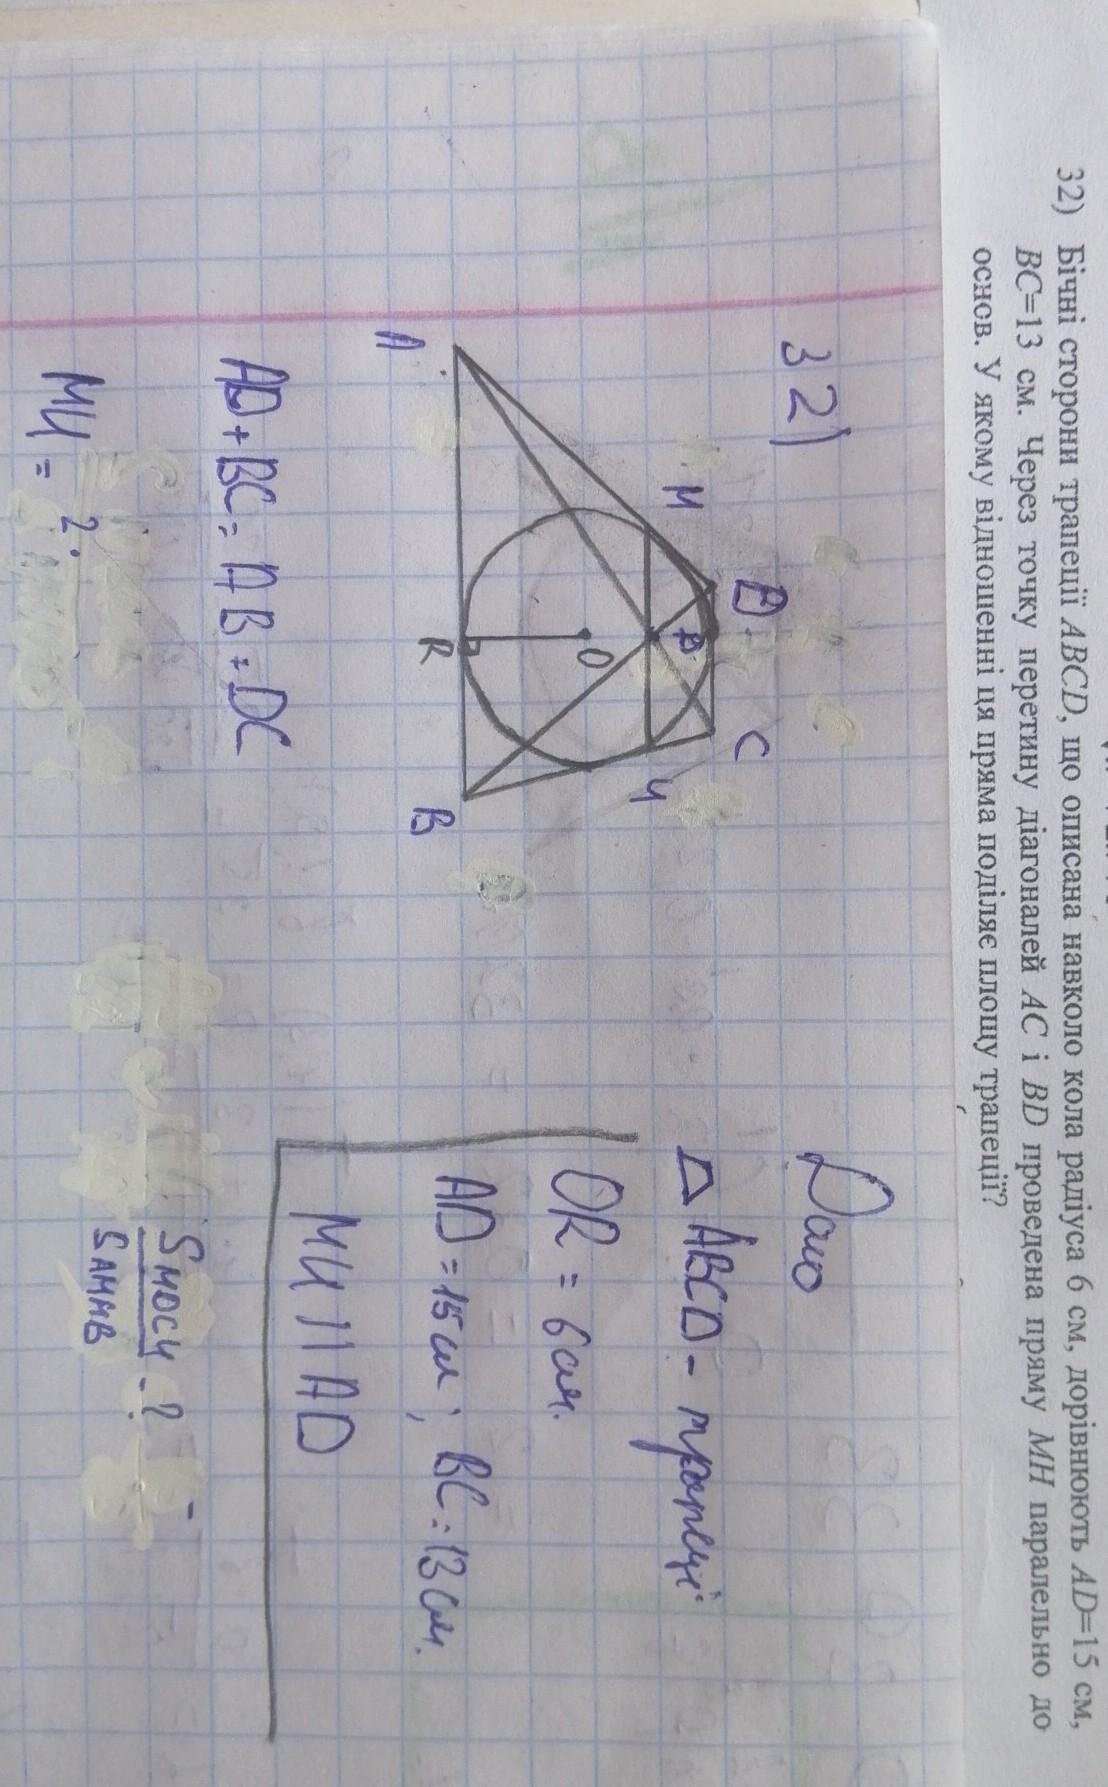 32) Бічні сторони трапеції ABCD, що описана навколо кола радіуса 6 см, дорівнюють AD=15 см,
BC=13 см. Через точку перетину діагоналей AC і BD проведена пряму MH паралельно до
основ. У якому відношенні ця пряма поділяє площу трапеції?
32)
D
C
M
Ч
O
A
R
B
AD+BC=AB+DC
МЧ = ?
Дано
ABCD - трапеці
OR = 6 см.
AD = 15 см ; BC = 13 см.
МЧ || AD